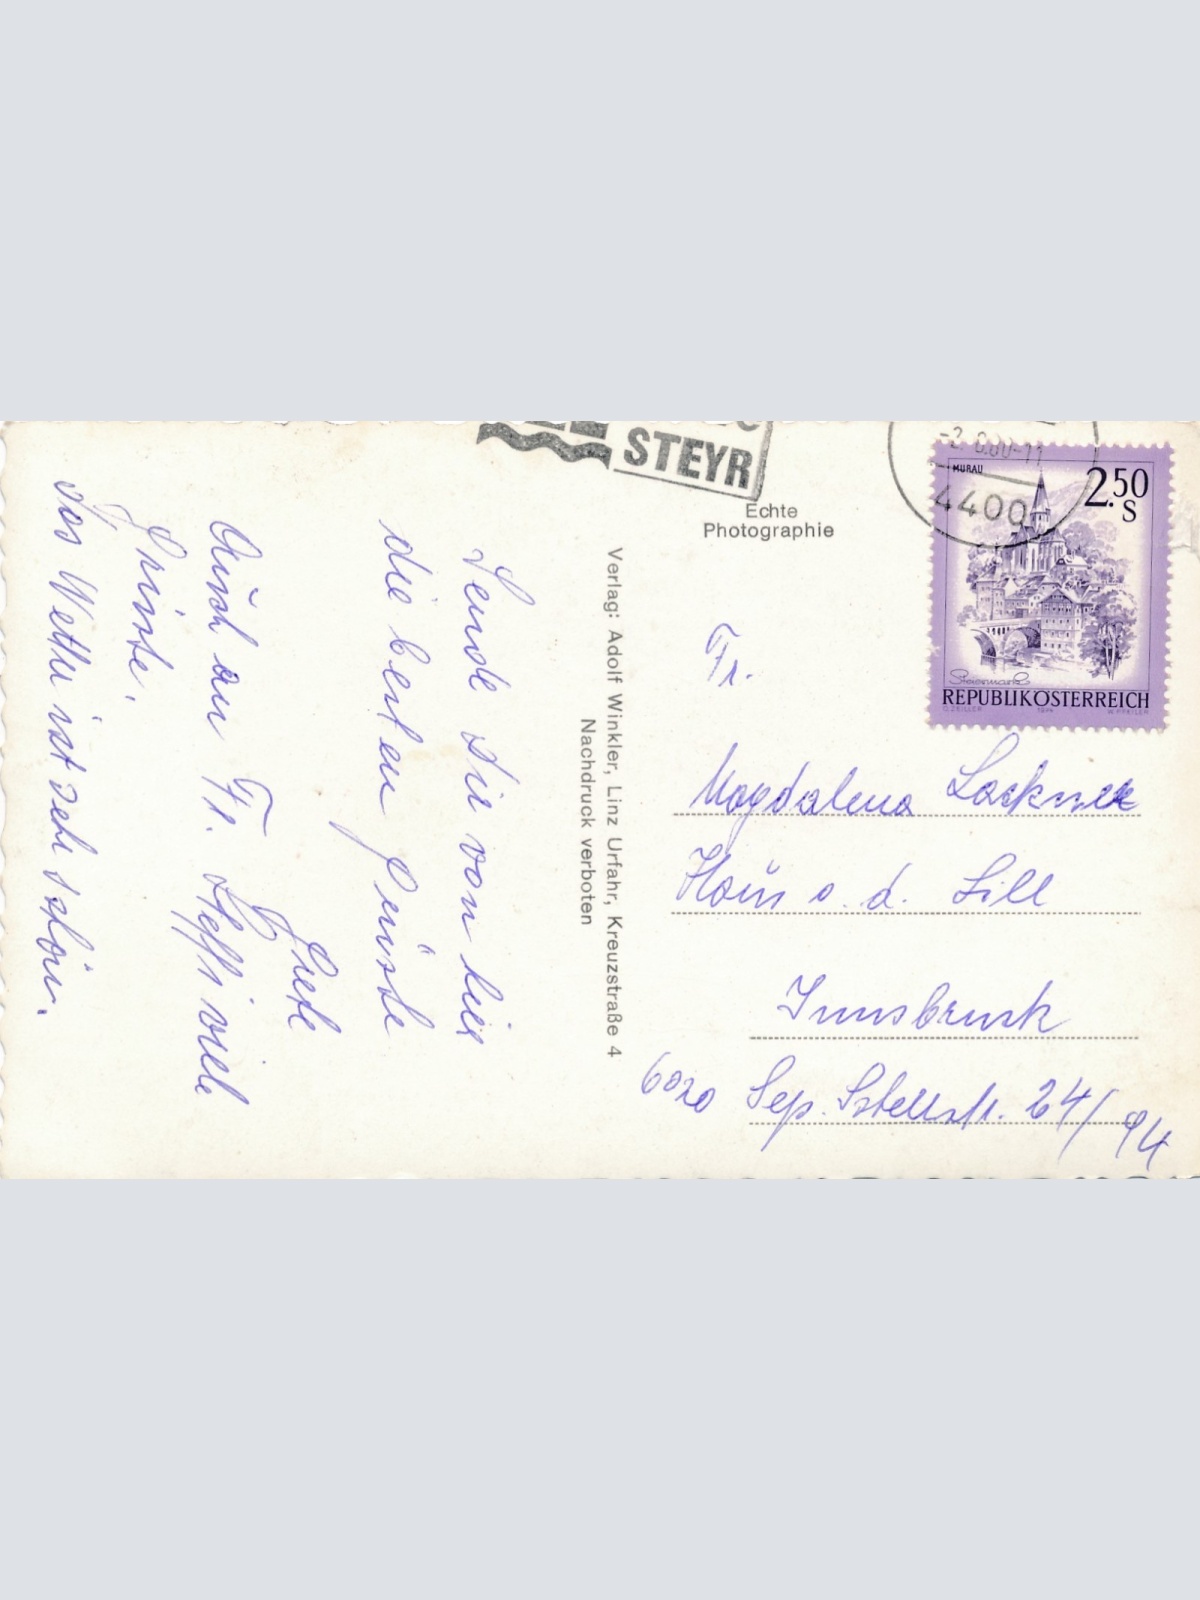 STEYR
4400
MURAU
2.50
S
Steiermark
REPUBLIK ÖSTERREICH
O. ZEILLER 1974 W. PFEILER
Echte
Photographie
Verlag: Adolf Winkler, Linz Urfahr, Kreuzstraße 4
Nachdruck verboten
Sende dir von hier
die besten Grüße
Grete
Auch an Fr. Steffi viele
Grüße.
Das Wetter ist sehr schön.
Fr.
Magdalena Lackner
Haus a. d. Sill
Innsbruck
6020 Sep. 24/94